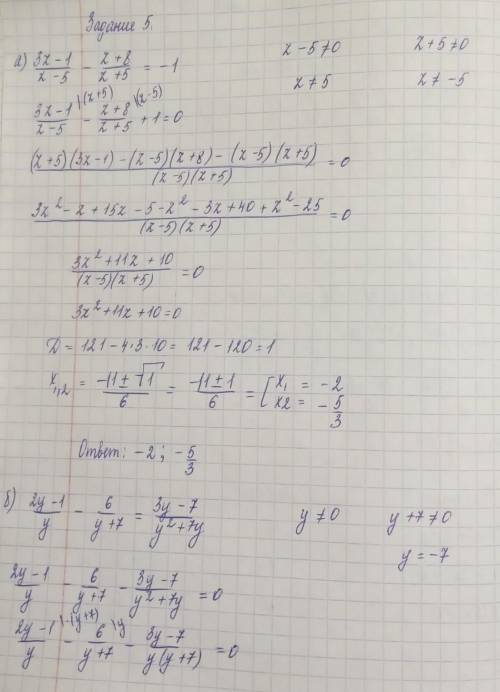 Задание 5.
а) (3x-1)/(x-5) - (x+8)/(x+5) = -1    x-5≠0    x+5≠0
x≠5    x≠-5
(3x-1)/(x-5) \(x+5) - (x+8)/(x+5) \(x-5) + 1 = 0
((x+5)(3x-1) - (x-5)(x+8) - (x-5)(x+5))/((x-5)(x+5)) = 0
(3x²-x+15x-5-x²-3x+40+x²-25)/((x-5)(x+5)) = 0
(3x²+11x+10)/((x-5)(x+5)) = 0
3x²+11x+10=0
D = 121-4·3·10 = 121-120 = 1
x₁,₂ = (-11±√1)/6 = (-11±1)/6 = [x₁ = -2
x2 = -5/3
Ответ: -2; -5/3
б) (2y-1)/y - 6/(y+7) = (3y-7)/(y²+7y)    y≠0    y+7≠0
y=-7
(2y-1)/y - 6/(y+7) - (3y-7)/(y²+7y) = 0
(2y-1)/y \·(y+7) - 6/(y+7) \y - (3y-7)/(y(y+7)) = 0